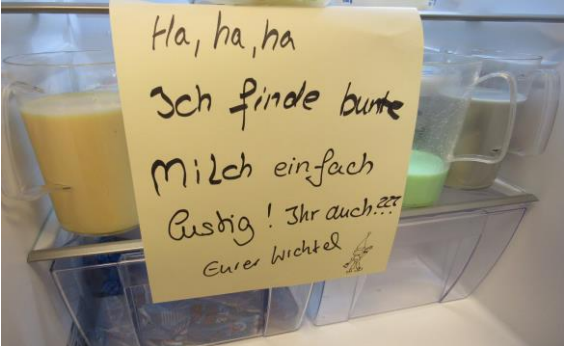 Ha, ha, ha
Ich finde bunte
Milch einfach
lustig! Ihr auch???
Euer Wichtel